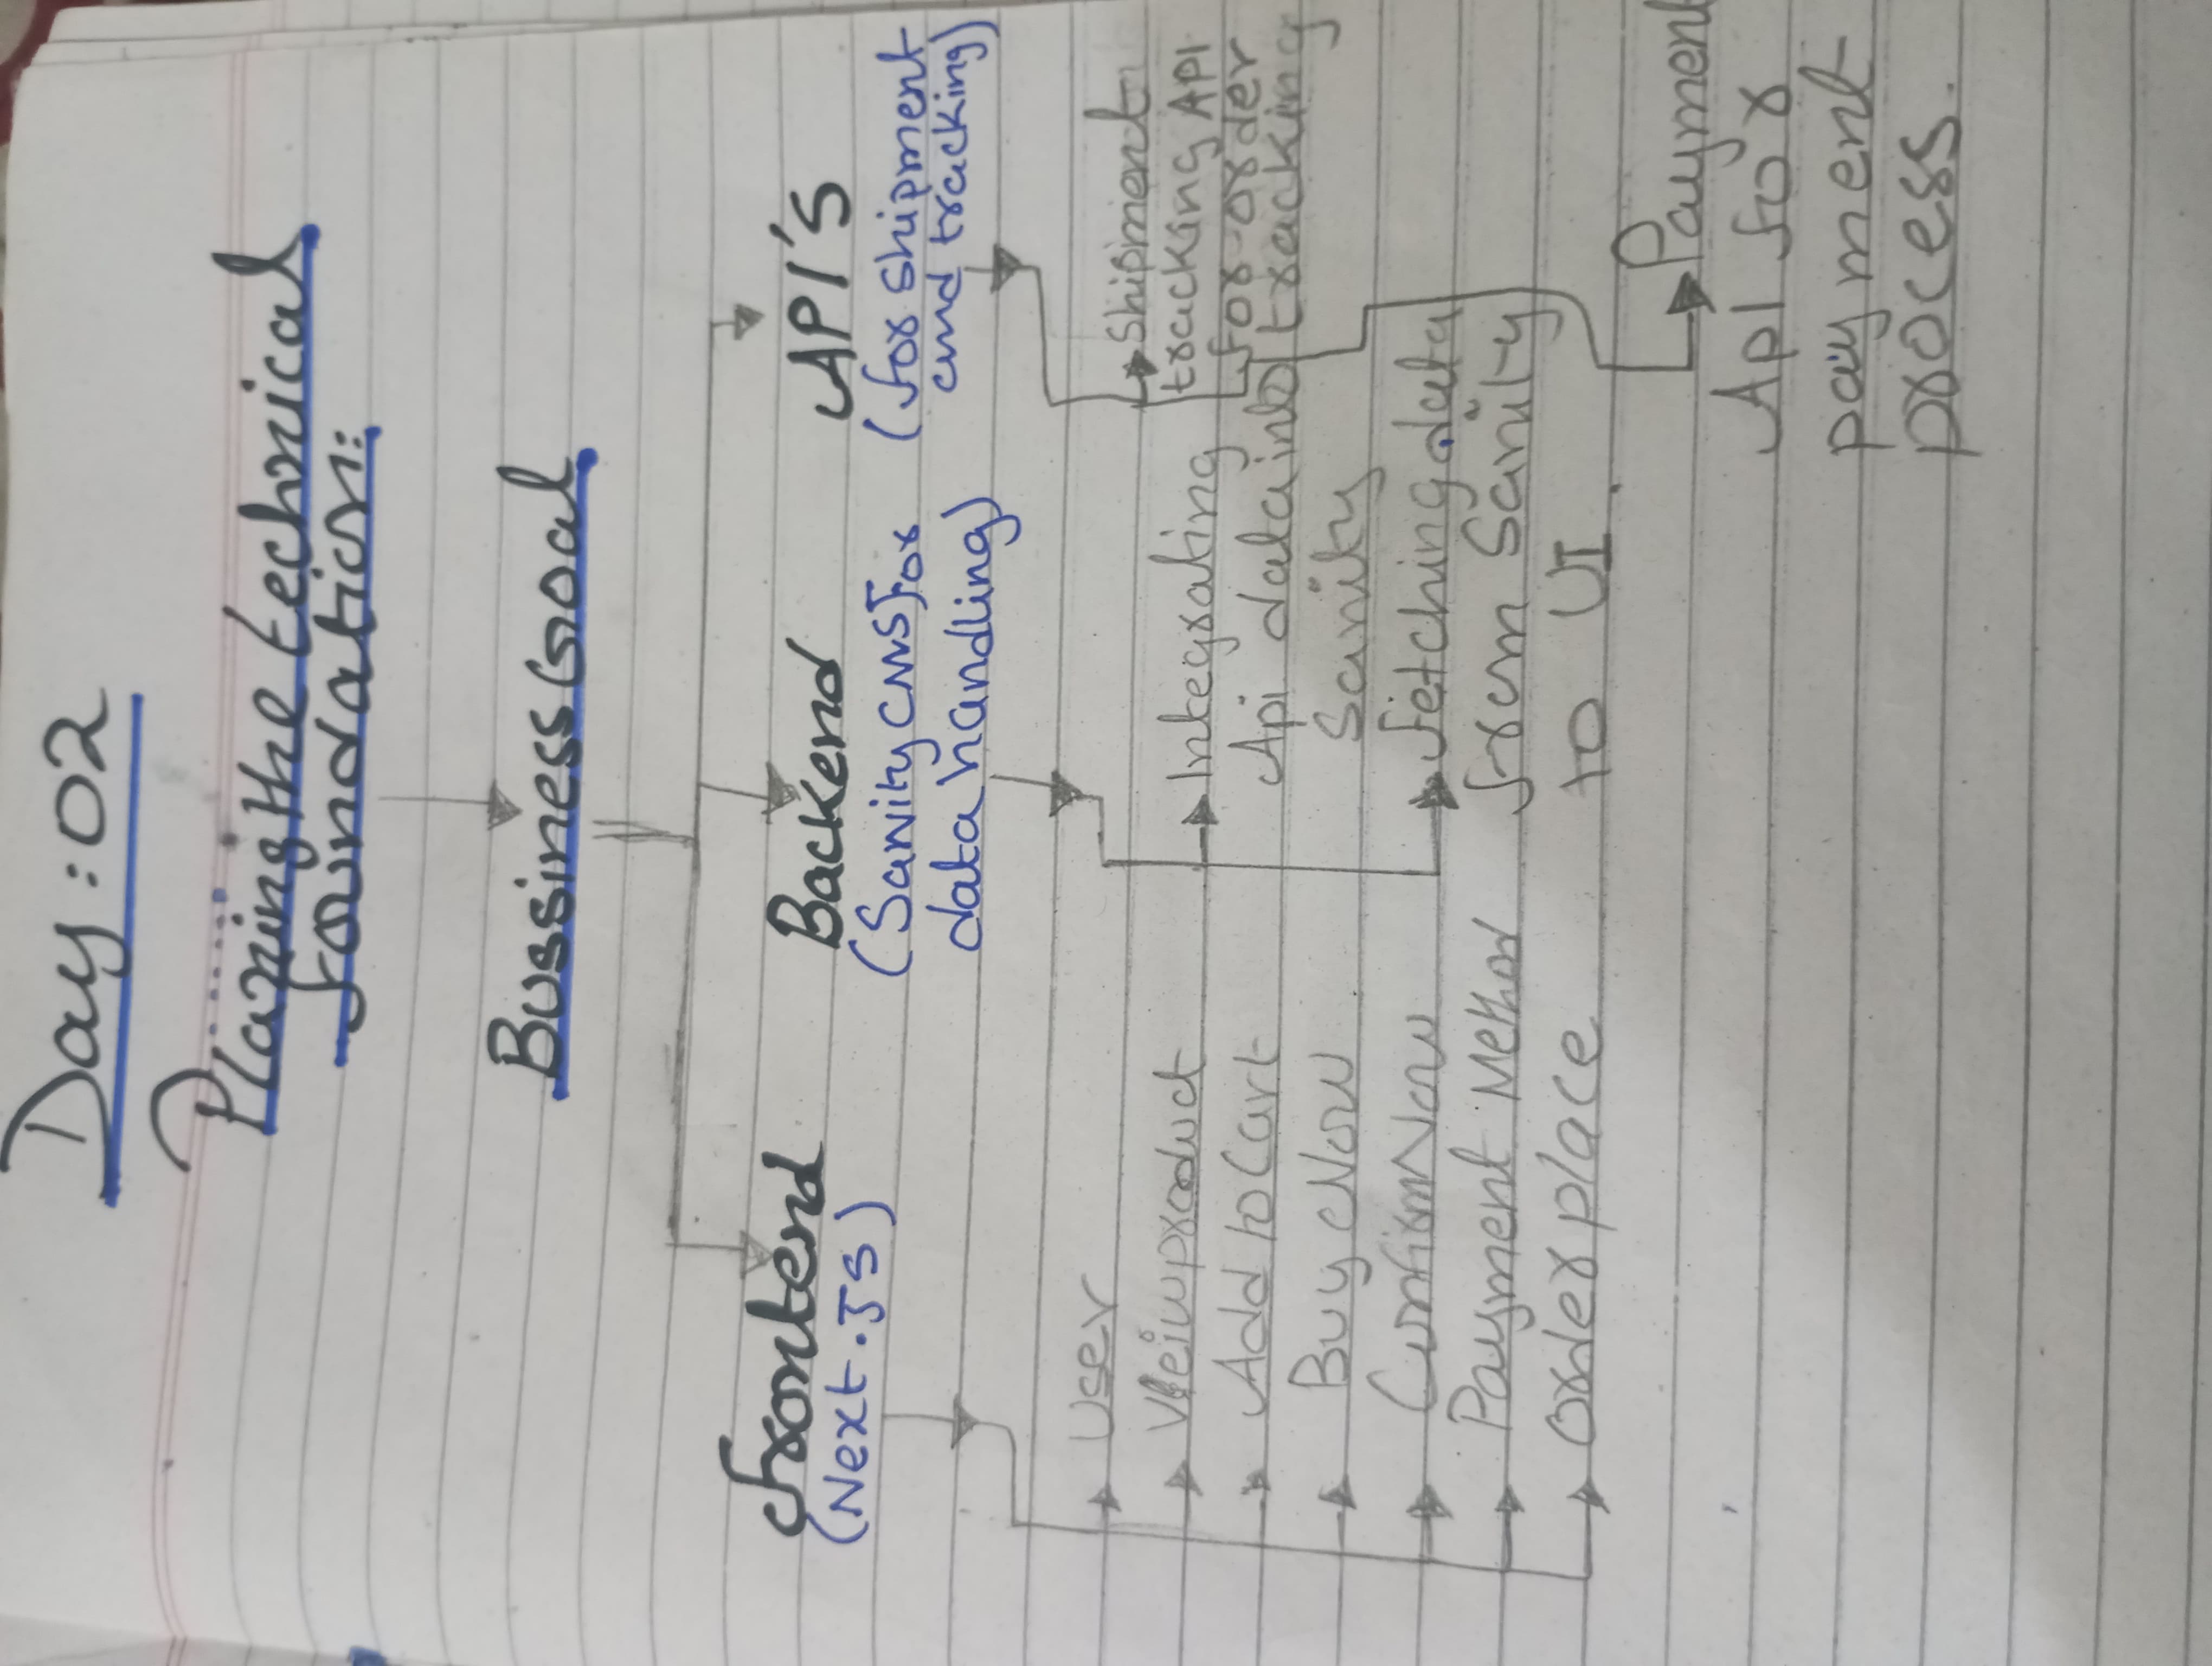 Day:02
Planing the technical
foundation:
Bussiness Goal
Frontend
(Next.Js)
User
Veiw product
Add to Cart
Buy Now
Confirm Now
Payment Method
Order place
Backend
(Sanity CMS For
data handling)
Integrating
Api data into
Sanity
fetching data
from Sanity
to UI
API's
(for shipment
and tracking)
Shipment
tracking API
for order
tracking
Payment
Api for
payment
process.